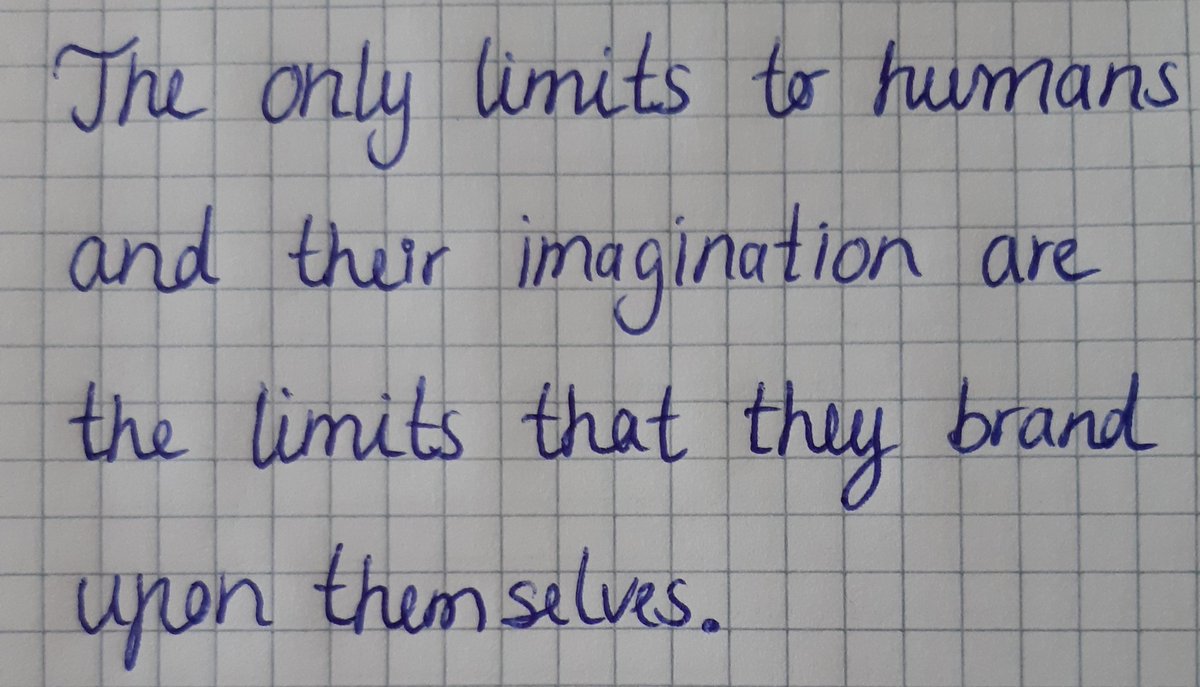 The only limits to humans
and their imagination are
the limits that they brand
upon themselves.